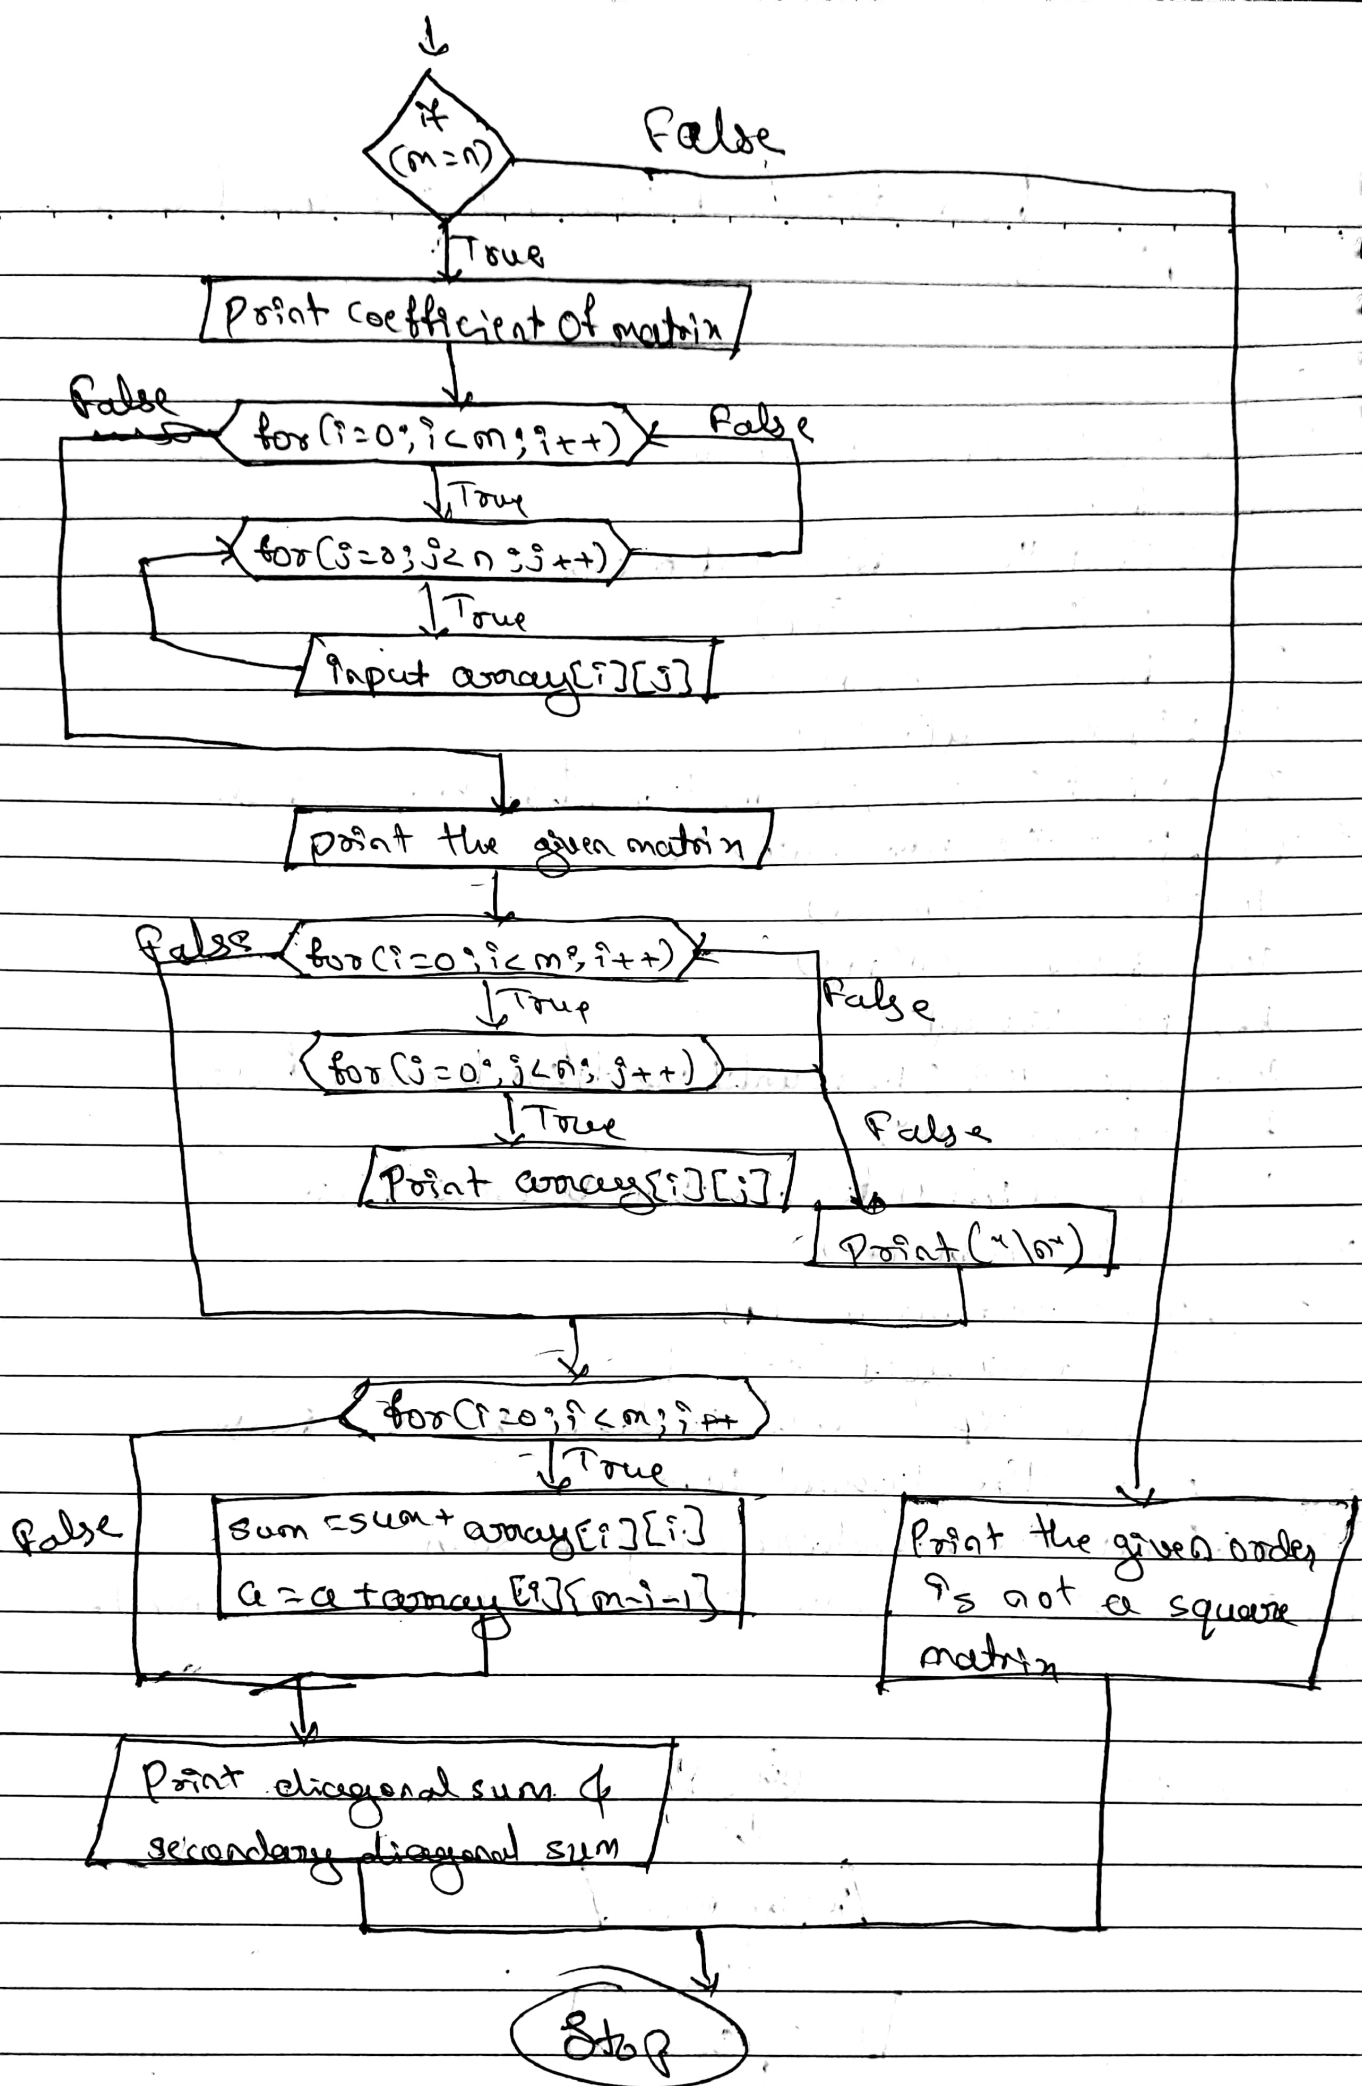 if
(m=n)
False
True
Print coefficient of matrix
False
for(i=0;i<m;i++)
False
True
for(j=0;j<n;j++)
True
input array[i][j]
print the given matrix
False
for(i=0;i<m;i++)
True
False
for(j=0;j<n;j++)
True
False
Print array[i][j]
Print("\n")
for(i=0;i<m;i++
True
False
sum=sum+array[i][i]
a=a+array[i][m-i-1]
Print the given order
is not a square
matrix
Print diagonal sum &
secondary diagonal sum
Stop